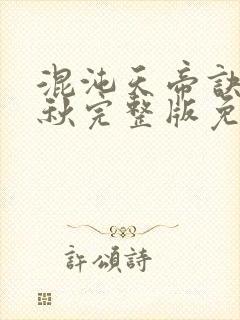 混沌天帝訣
秋完整版免
許頌詩